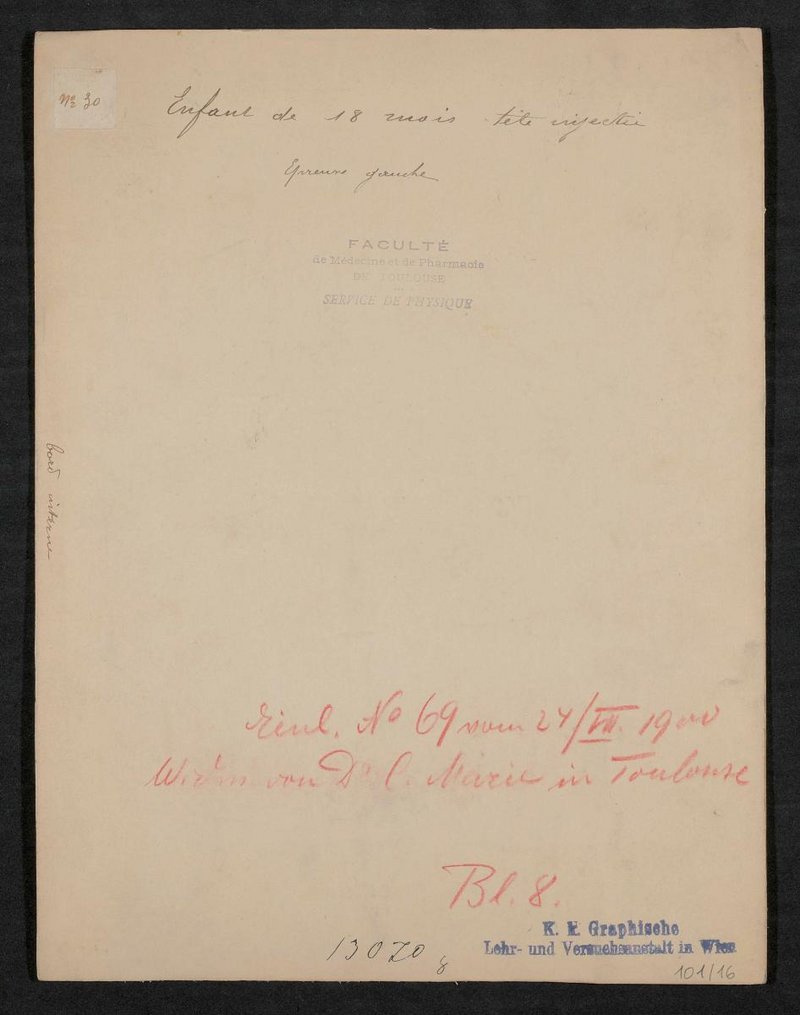 No 30
Enfant de 18 mois tête injectée
Epreuve gauche
FACULTÉ
de Médecine et de Pharmacie
DE TOULOUSE
SERVICE DE PHYSIQUE
bord interne
Einl. No 69 vom 24/VII. 1900
von Dr C. Marie in Toulouse
Bl. 8.
K. k. Graphische
Lehr- und Versuchsanstalt in Wien
13070
8
101/16